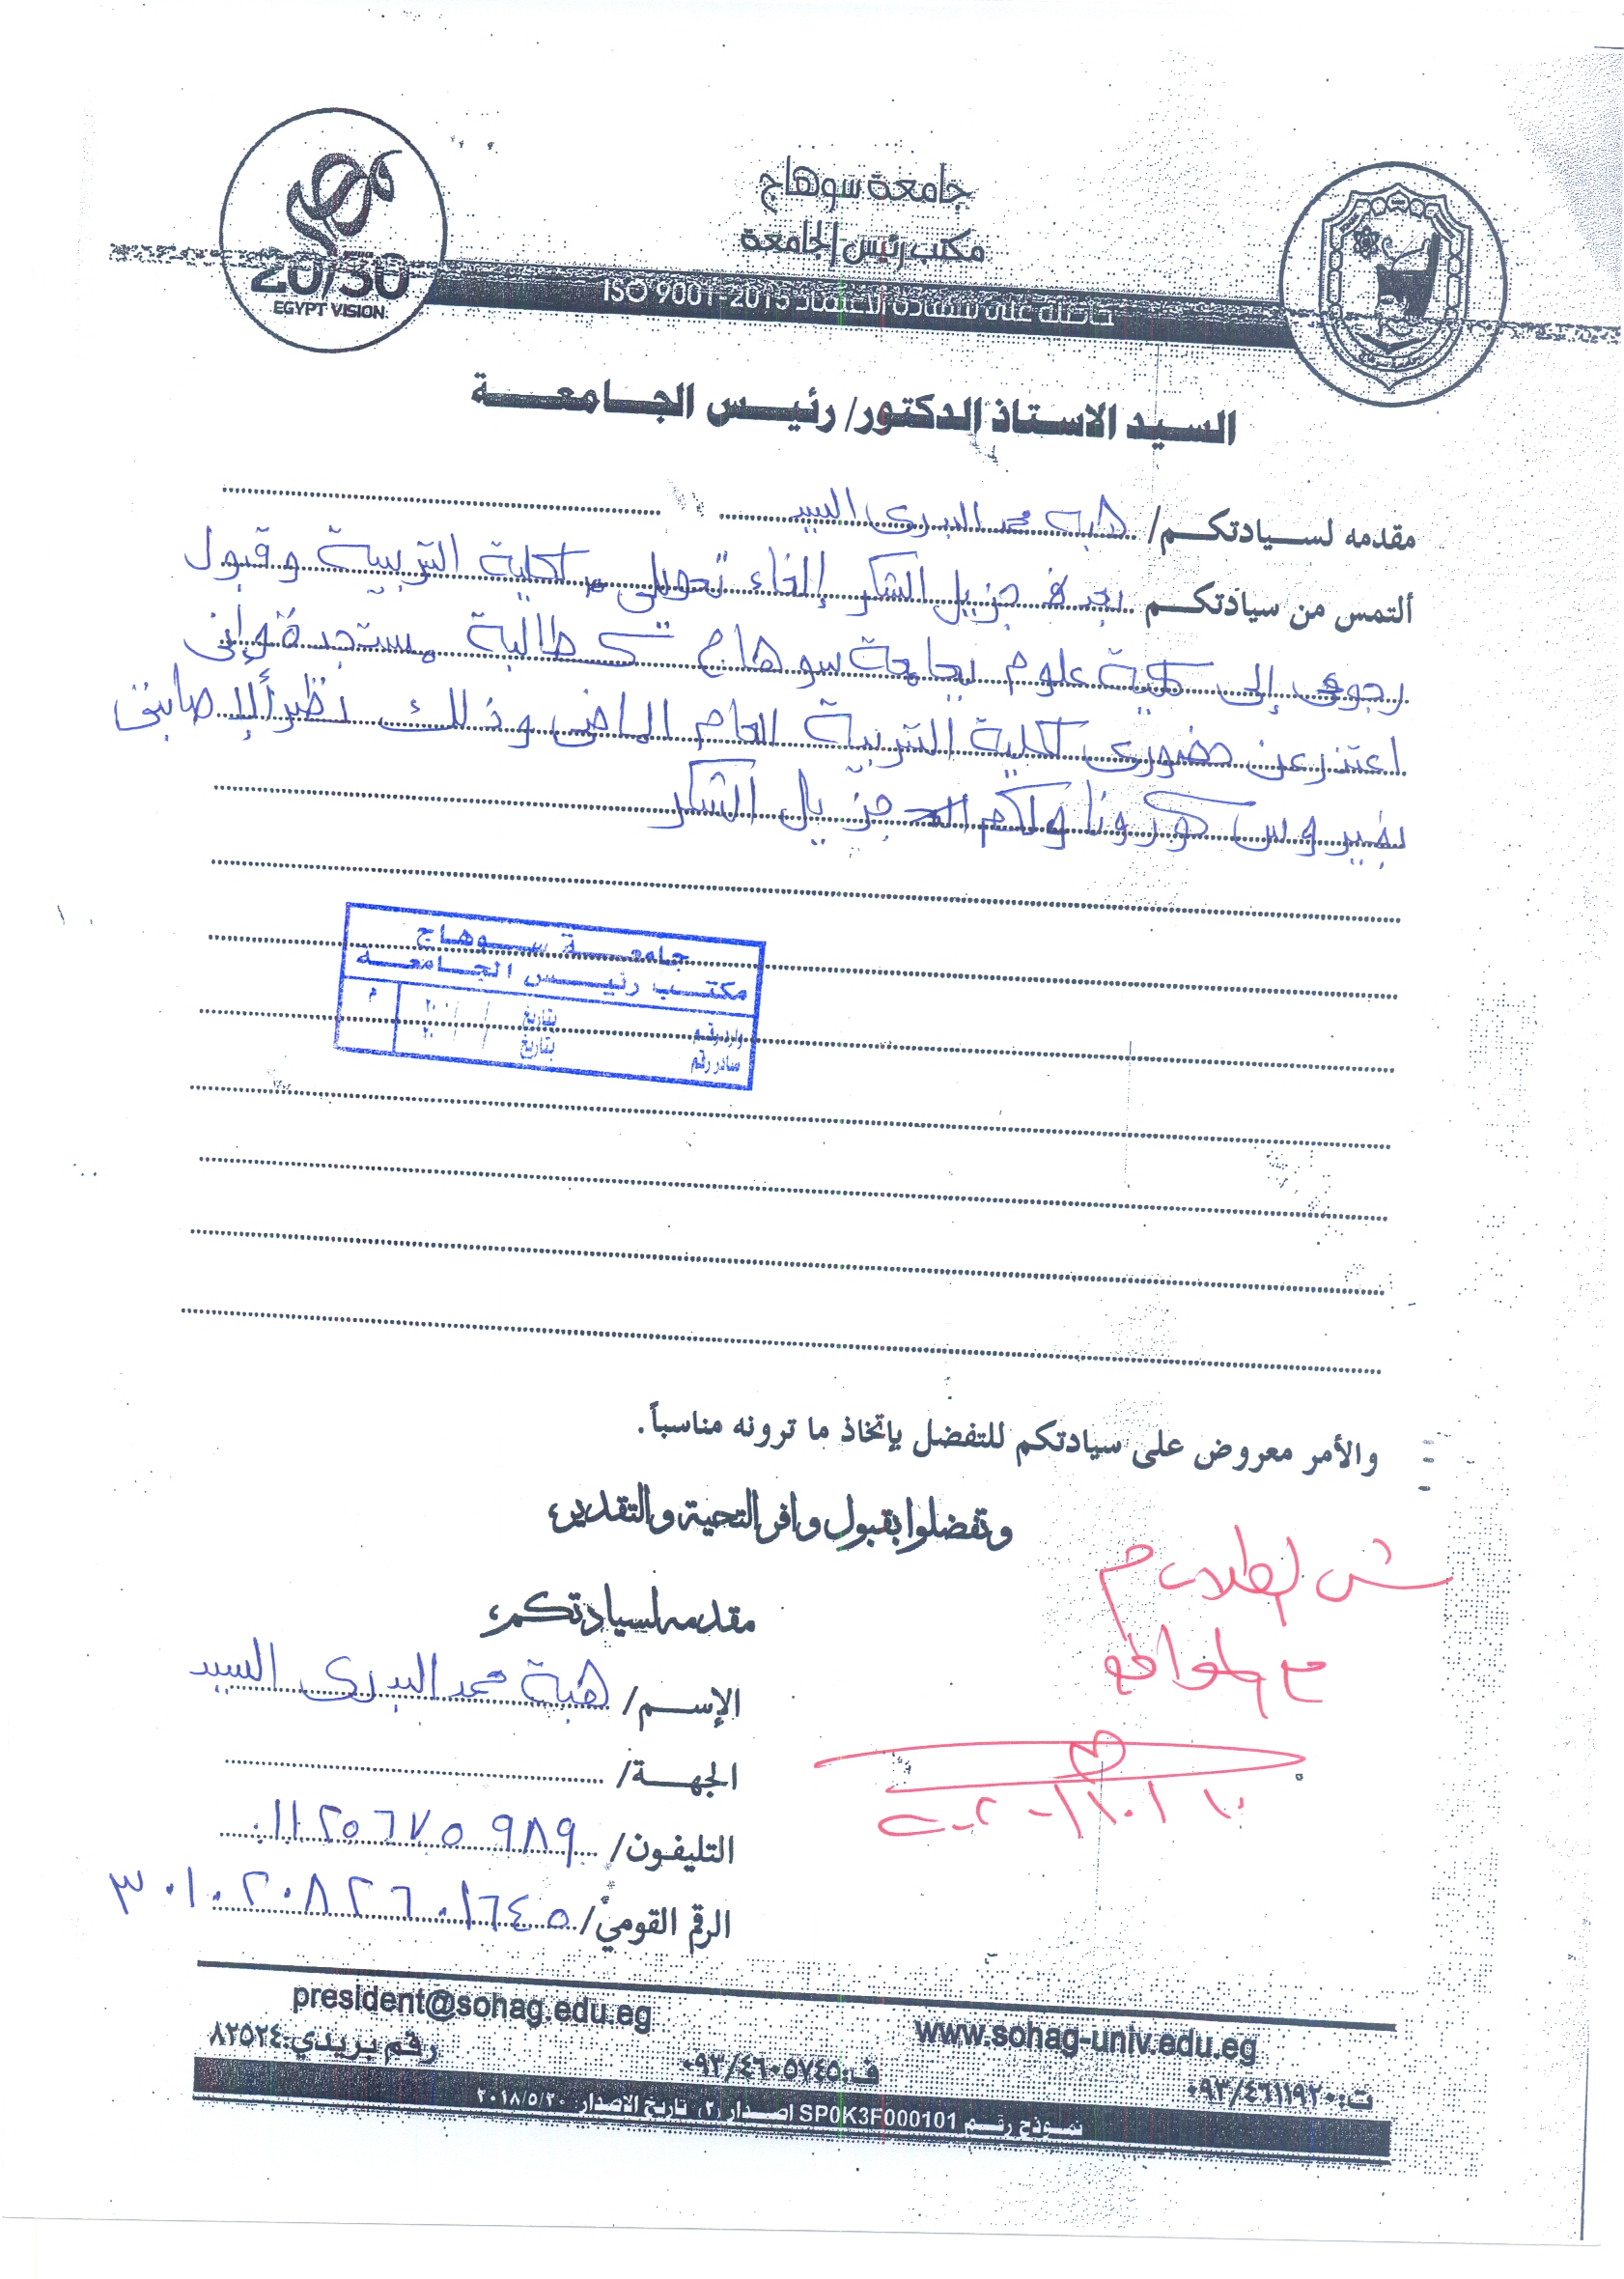 جامعة سوهاج
مكتب رئيس الجامعة
حاصلة على شهادة الاعتماد ISO 9001-2015
20/30
EGYPT VISION
السيد الاستاذ الدكتور/ رئيس الجامعة
مقدمه لسيادتكم/ هبه محمد البدرى السيد
ألتمس من سيادتكم بعد جزيل الشكر إلغاء تحويلى كلية التربية وقبول
رجوعى إلى كلية علوم بجامعة سوهاج كطالبة مستجدة وإنى
اعتذر عن حضورى كلية التربية العام الماضى وذلك نظراً لإصابتى
بفيروس كورونا ولكم جزيل الشكر
جامعة سوهاج
مكتب رئيس الجامعة
وارد رقم بتاريخ / / ٢٠ م
صادر رقم بتاريخ / / ٢٠
والأمر معروض على سيادتكم للتفضل بإتخاذ ما ترونه مناسباً.
وتفضلوا بقبول وافر التحية والتقدير،
مقدمه لسيادتكم،
الإسم/ هبة محمد البدرى السيد
الجهة/
التليفون/ ٠١١٢٥٦٧٥٩٨٩
الرقم القومي/ ٣٠١٠٢٠٨٢٦٠١٦٤٥
شئون الطلاب
president@sohag.edu.eg
www.sohag-univ.edu.eg
رقم بريدي: ٨٢٥٢٤
ف: ٠٩٣/٤٦٠٥٧٤٥
ت: ٠٩٣/٤٦١١٩٢٠
نموذج رقم SP0K3F000101 اصدار (٢) تاريخ الاصدار ٢٠١٨/٥/٢٠